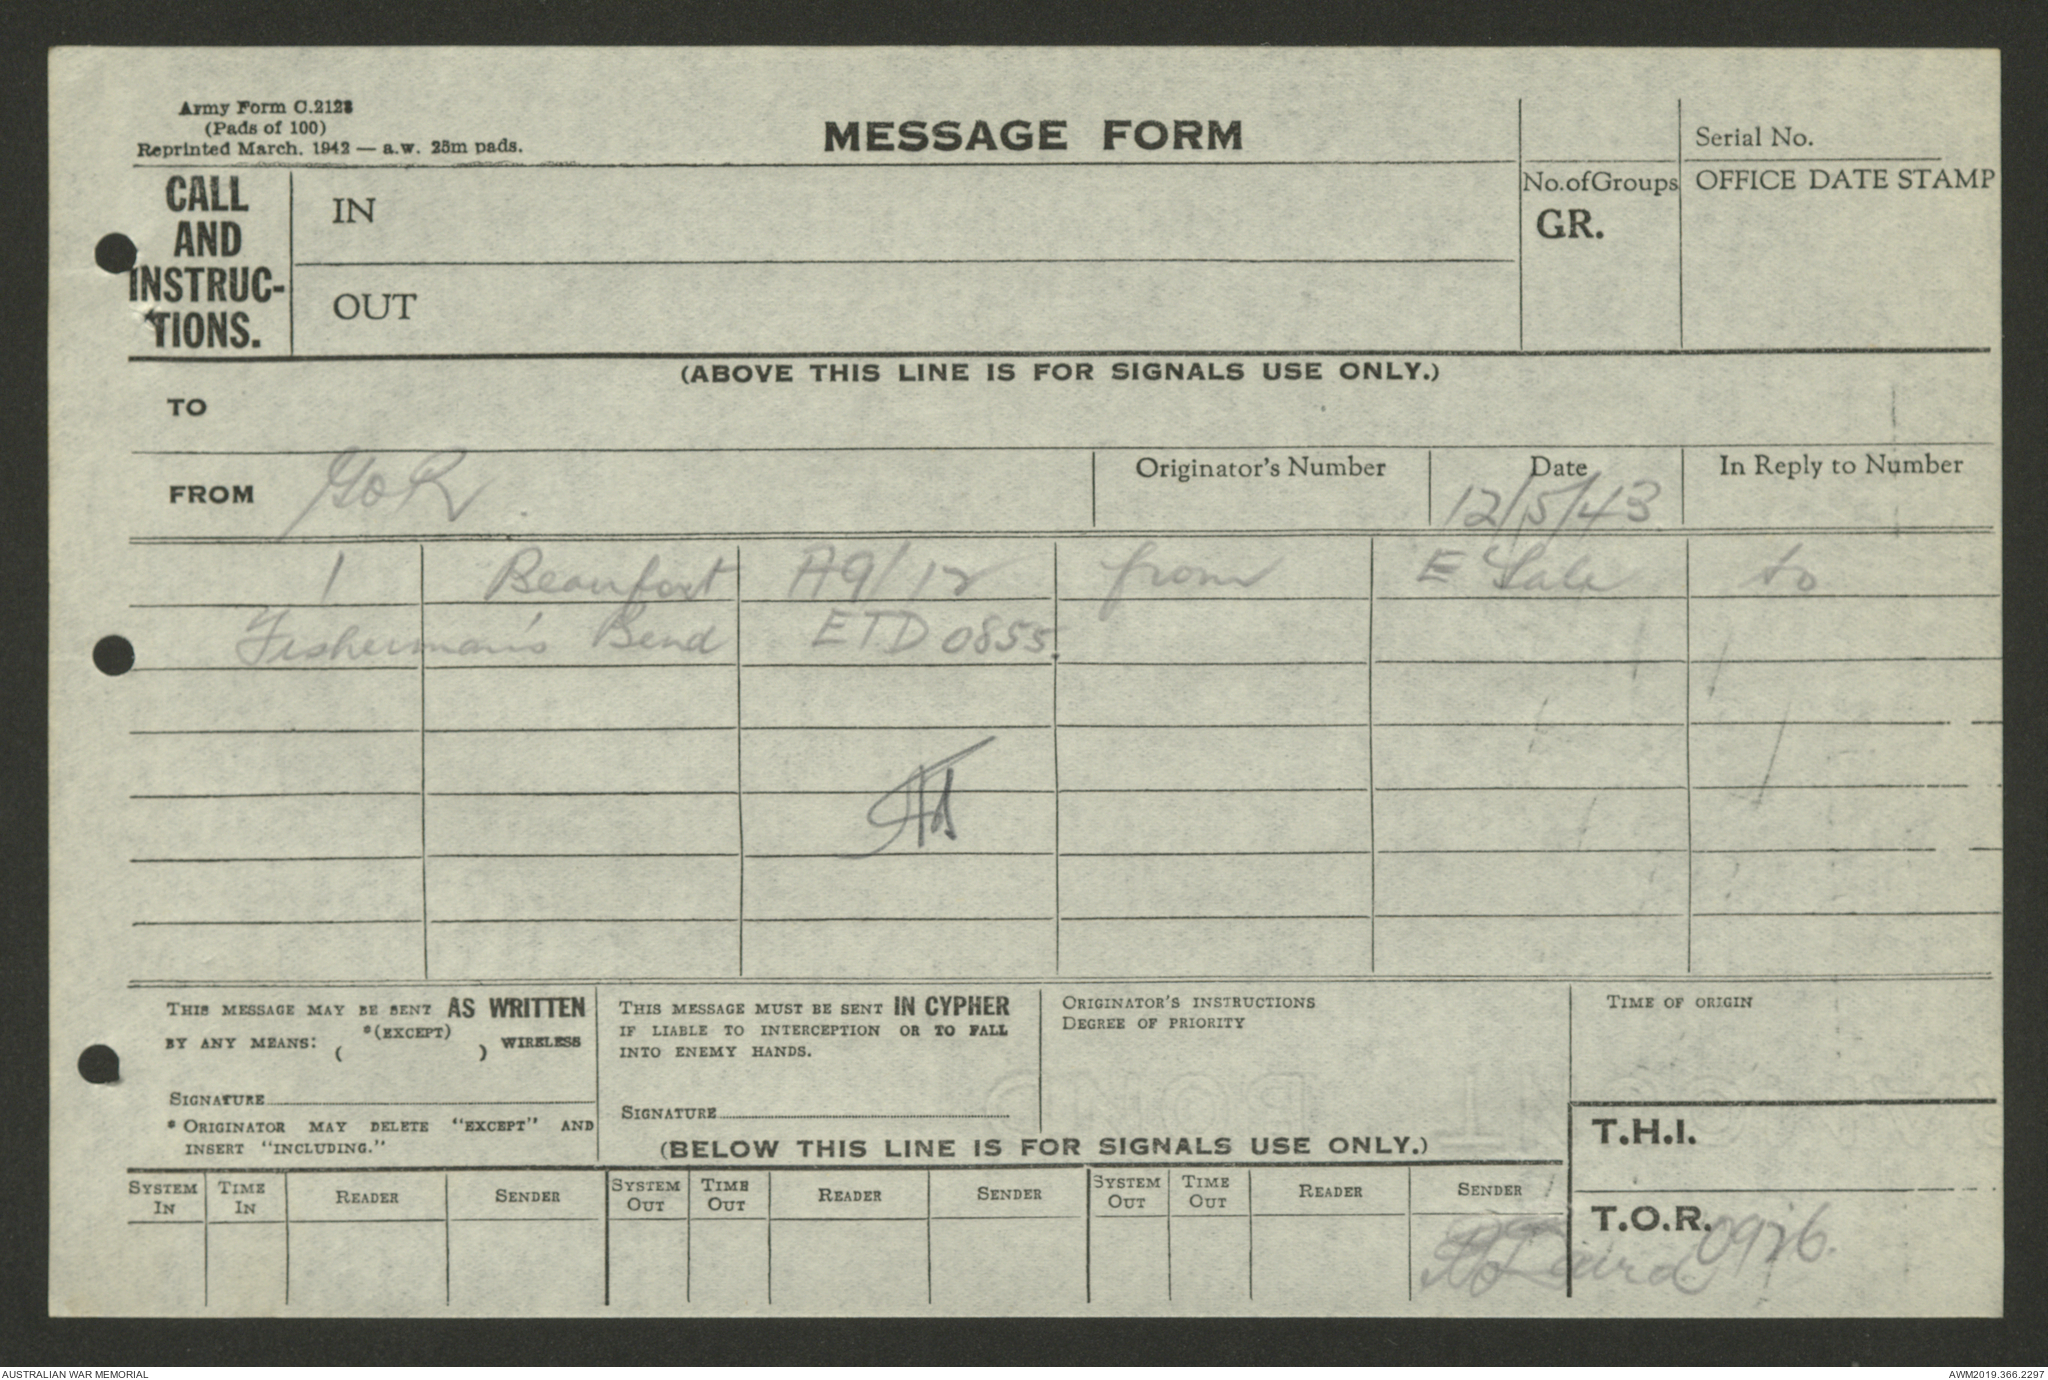 Army Form C.2128
(Pads of 100)
Reprinted March. 1942 — a.w. 25m pads.
MESSAGE FORM
Serial No.
CALL AND INSTRUC-TIONS.
IN
OUT
No.ofGroups
GR.
OFFICE DATE STAMP
(ABOVE THIS LINE IS FOR SIGNALS USE ONLY.)
TO
FROM GOR.
Originator's Number
Date
12/5/43
In Reply to Number
1 Beaufort A9/12 from E Sale to
Fisherman's Bend ETD 0855.
THIS MESSAGE MAY BE SENT AS WRITTEN
BY ANY MEANS: *(EXCEPT) ( ) WIRELESS
SIGNATURE
* ORIGINATOR MAY DELETE "EXCEPT" AND
INSERT "INCLUDING."
THIS MESSAGE MUST BE SENT IN CYPHER
IF LIABLE TO INTERCEPTION OR TO FALL
INTO ENEMY HANDS.
SIGNATURE
ORIGINATOR'S INSTRUCTIONS
DEGREE OF PRIORITY
TIME OF ORIGIN
T.H.I.
(BELOW THIS LINE IS FOR SIGNALS USE ONLY.)
SYSTEM IN
TIME IN
READER
SENDER
SYSTEM OUT
TIME OUT
READER
SENDER
SYSTEM OUT
TIME OUT
READER
SENDER
T.O.R. 0926.
AUSTRALIAN WAR MEMORIAL
AWM2019.366.2297